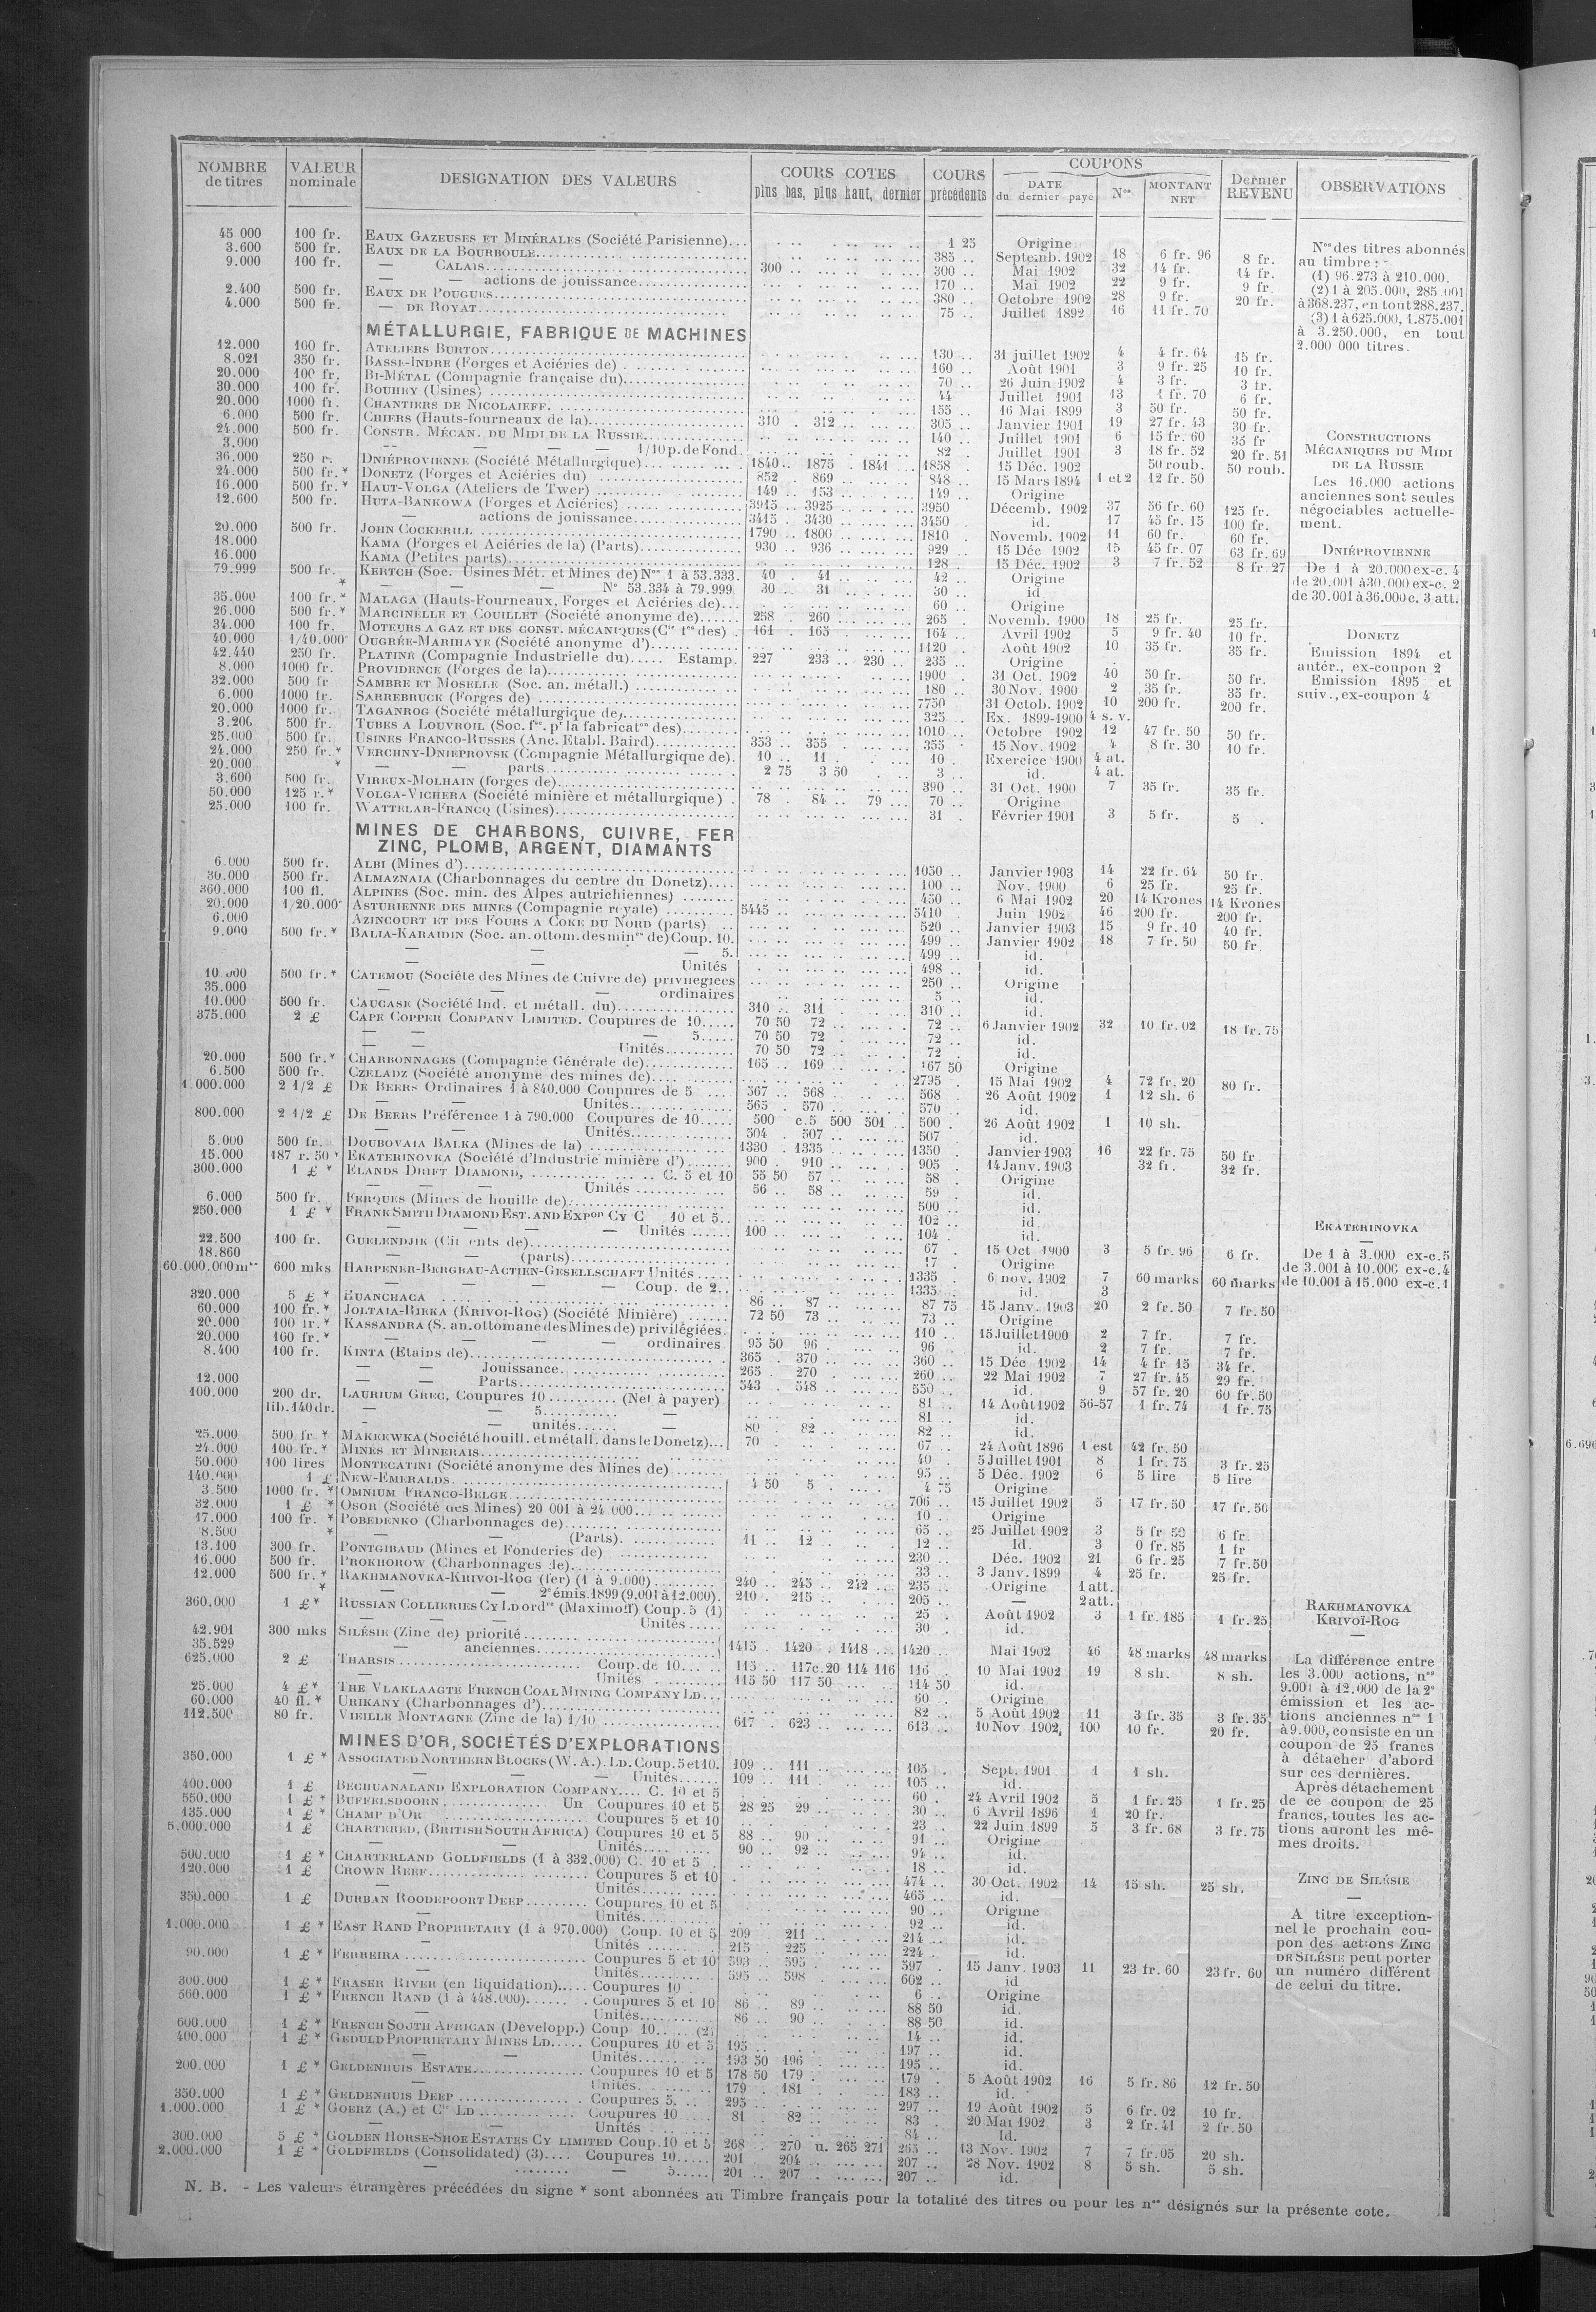 NOMBRE de titres | VALEUR nominale | DESIGNATION DES VALEURS | COURS COTES plus bas, plus haut, dernier | COURS précédents | COUPONS DATE du dernier payé | Nos | MONTANT NET | Dernier REVENU | OBSERVATIONS
45 000 100 fr. EAUX GAZEUSES ET MINÉRALES (Société Parisienne)... 1 25 Origine
3.600 500 fr. EAUX DE LA BOURBOULE 385 Septemb. 1902 18 6 fr. 96 8 fr.
9.000 100 fr. — CALAIS 300 300 Mai 1902 32 14 fr. 14 fr.
— actions de jouissance 170 Mai 1902 22 9 fr. 9 fr.
2.400 500 fr. EAUX DE POUGUES 380 Octobre 1902 28 9 fr. 20 fr.
4.000 500 fr. — DE ROYAT 75 Juillet 1892 16 11 fr. 70
MÉTALLURGIE, FABRIQUE DE MACHINES
12.000 100 fr. ATELIERS BURTON 130 31 juillet 1902 4 4 fr. 64 15 fr.
8.021 350 fr. BASSE-INDRE (Forges et Aciéries de) 160 Août 1901 3 9 fr. 25 10 fr.
20.000 100 fr. BI-MÉTAL (Compagnie française du) 70 26 Juin 1902 4 3 fr. 3 fr.
30.000 100 fr. BOUHEY (Usines) 44 Juillet 1901 13 1 fr. 70 6 fr.
20.000 1000 fr. CHANTIERS DE NICOLAIEFF 155 16 Mai 1899 3 50 fr. 50 fr.
6.000 500 fr. CHIERS (Hauts-fourneaux de la) 310 312 305 Janvier 1901 19 27 fr. 43 30 fr.
24.000 500 fr. CONSTR. MÉCAN. DU MIDI DE LA RUSSIE 140 Juillet 1901 6 15 fr. 60 35 fr
3.000 — — — 1/10 p. de Fond. 82 Juillet 1901 3 18 fr. 52 20 fr. 51
36.000 250 r. DNIÉPROVIENNE (Société Métallurgique) 1840 1875 1841 1858 15 Déc. 1902 50 roub. 50 roub.
24.000 500 fr.* DONETZ (Forges et Aciéries du) 852 869 848 15 Mars 1894 1 et 2 12 fr. 50
16.000 500 fr.* HAUT-VOLGA (Ateliers de Twer) 149 153 149 Origine
12.600 500 fr. HUTA-BANKOWA (Forges et Aciéries) 3915 3925 3950 Décemb. 1902 37 56 fr. 60 125 fr.
— actions de jouissance 3415 3430 3450 id. 17 45 fr. 15 100 fr.
20.000 500 fr. JOHN COCKERILL 1790 1800 1810 Novemb. 1902 11 60 fr. 60 fr.
18.000 KAMA (Forges et Aciéries de la) (Parts) 930 936 929 15 Déc 1902 15 45 fr. 07 63 fr. 69
16.000 KAMA (Petites parts) 128 15 Déc. 1902 3 7 fr. 52 8 fr 27
79.999 500 fr. KERTCH (Soc. Usines Mét. et Mines de) Nos 1 à 53.333. 40 41 42 Origine
* — — N° 53.334 à 79.999. 30 31 30 id
35.000 100 fr.* MALAGA (Hauts-Fourneaux, Forges et Aciéries de) 60 Origine
26.000 500 fr.* MARCINELLE ET COUILLET (Société anonyme de) 258 260 265 Novemb. 1900 18 25 fr. 25 fr.
34.000 100 fr. MOTEURS A GAZ ET DES CONST. MÉCANIQUES (Cie fse des) 161 165 164 Avril 1902 5 9 fr. 40 10 fr.
40.000 1/40.000e OUGRÉE-MARIHAYE (Société anonyme d') 1120 Août 1902 10 35 fr. 35 fr.
42.440 250 fr. PLATINE (Compagnie Industrielle du)..... Estamp. 227 233 230 235 Origine
8.000 1000 fr. PROVIDENCE (Forges de la) 1900 31 Oct. 1902 40 50 fr. 50 fr.
32.000 500 fr SAMBRE ET MOSELLE (Soc. an. métall.) 180 30 Nov. 1900 2 35 fr. 35 fr.
6.000 1000 fr. SARREBRUCK (Forges de) 7750 31 Octob. 1902 10 200 fr. 200 fr.
20.000 1000 fr. TAGANROG (Société métallurgique de) 325 Ex. 1899-1900 4 s. v.
3.200 500 fr. TUBES A LOUVROIL (Soc. fse pr la fabricaton des) 1010 Octobre 1902 12 47 fr. 50 50 fr.
25.000 500 fr. USINES FRANCO-RUSSES (Anc. Etabl. Baird) 353 355 355 15 Nov. 1902 4 8 fr. 30 10 fr.
24.000 250 fr.* VERCHNY-DNIEPROVSK (Compagnie Métallurgique de). 10 11 10 Exercice 1900 4 at.
20.000 * — — parts 2 75 3 50 3 id. 4 at.
3.600 500 fr. VIREUX-MOLHAIN (forges de) 390 31 Oct. 1900 7 35 fr. 35 fr.
50.000 125 r.* VOLGA-VICHERA (Société minière et métallurgique) 78 84 79 70 Origine
25.000 100 fr. WATTELAR-FRANCQ (Usines) 31 Février 1901 3 5 fr. 5
MINES DE CHARBONS, CUIVRE, FER
ZINC, PLOMB, ARGENT, DIAMANTS
6.000 500 fr. ALBI (Mines d') 1050 Janvier 1903 14 22 fr. 64 50 fr.
30.000 500 fr. ALMAZNAIA (Charbonnages du centre du Donetz) 100 Nov. 1900 6 25 fr. 25 fr.
360.000 100 fl. ALPINES (Soc. min. des Alpes autrichiennes) 450 6 Mai 1902 20 14 Krones 14 Krones
20.000 1/20.000e ASTURIENNE DES MINES (Compagnie royale) 5445 5410 Juin 1902 46 200 fr. 200 fr.
6.000 AZINCOURT ET DES FOURS A COKE DU NORD (parts) 520 Janvier 1903 15 9 fr. 10 40 fr.
9.000 500 fr.* BALIA-KARAIDIN (Soc. an. ottom. des mines de) Coup. 10. 499 Janvier 1902 18 7 fr. 50 50 fr
— — — 5. 499 id.
— — Unités 498 id.
10.000 500 fr.* CATEMOU (Société des Mines de Cuivre de) privilégiées 250 Origine
35.000 — — — ordinaires 5 id.
10.000 500 fr. CAUCASE (Société Ind. et métall. du) 310 311 310 id.
375.000 2 £ CAPE COPPER COMPANY LIMITED. Coupures de 10 70 50 72 72 6 Janvier 1902 32 10 fr. 02 18 fr. 75
— — — 5 70 50 72 72 id.
— — Unités 70 50 72 72 id.
20.000 500 fr.* CHARBONNAGES (Compagnie Générale de) 165 169 167 50 Origine
6.500 500 fr. CZELADZ (Société anonyme des mines de) 2795 15 Mai 1902 4 72 fr. 20 80 fr.
1.000.000 2 1/2 £ DE BEERS Ordinaires 1 à 840.000 Coupures de 5 567 568 568 26 Août 1902 1 12 sh. 6
— — Unités 565 570 570 id.
800.000 2 1/2 £ DE BEERS Préférence 1 à 790.000 Coupures de 10 500 c.5 500 501 500 26 Août 1902 1 10 sh.
— — Unités 504 507 507 id.
5.000 500 fr. DOUBOVAIA BALKA (Mines de la) 1330 1335 1350 Janvier 1903 16 22 fr. 75 50 fr
15.000 187 r. 50* EKATERINOVKA (Société d'Industrie minière d') 900 910 905 14 Janv. 1903 32 fr. 32 fr.
300.000 1 £ * ELANDS DRIFT DIAMOND, C. 5 et 10 55 50 57 58 Origine
— — — Unités 56 58 59 id.
6.000 500 fr. FERQUES (Mines de houille de) 500 id.
250.000 1 £ * FRANK SMITH DIAMOND EST. AND EXPon CY C 10 et 5 102 id.
— — — Unités 100 104 id.
22.500 100 fr. GUELENDJIK (de) 67 15 Oct 1900 3 5 fr. 96 6 fr.
18.860 — — (parts) 17 Origine
60.000.000 mks 600 mks HARPENER-BERGBAU-ACTIEN-GESELLSCHAFT Unités 1335 6 nov. 1902 7 60 marks 60 marks
— — — Coup. de 2 1335 id. 3
320.000 5 £ * HUANCHACA 86 87 87 75 15 Janv. 1903 20 2 fr. 50 7 fr. 50
60.000 100 fr.* JOLTAIA-RIEKA (KRIVOI-ROG) (Société Minière) 72 50 73 73 Origine
20.000 100 fr.* KASSANDRA (S. an. ottomane des Mines de) privilégiées 110 15 Juillet 1900 2 7 fr. 7 fr.
20.000 100 fr.* — — — ordinaires 95 50 96 96 id. 2 7 fr. 7 fr.
8.400 100 fr. KINTA (Etains de) 365 370 360 15 Déc 1902 14 4 fr 15 34 fr.
— — Jouissance 265 270 260 22 Mai 1902 7 27 fr. 45 29 fr.
12.000 — — Parts 543 548 550 id. 9 57 fr. 20 60 fr. 50
100.000 200 dr. LAURIUM GREC, Coupures 10 (Net à payer) 81 14 Août 1902 56-57 1 fr. 74 1 fr. 75
lib. 140 dr. — — 5 — 81 id.
- — unités — 80 82 82 id.
25.000 500 fr.* MAKEEWKA (Société houill. et métall. dans le Donetz) 70 67 24 Août 1896 1 est 42 fr. 50
24.000 100 fr.* MINES ET MINERAIS 40 5 Juillet 1901 8 1 fr. 75 3 fr. 25
50.000 100 lires MONTECATINI (Société anonyme des Mines de) 95 5 Déc. 1902 6 5 lire 5 lire
140.000 1 £ NEW-EMERALDS 4 50 5 4 75 Origine
3.500 1000 fr.* OMNIUM FRANCO-BELGE 706 15 Juillet 1902 5 17 fr. 50 17 fr. 50
32.000 1 £ * OSOR (Société des Mines) 20 001 à 24 000 10 Origine
17.000 100 fr. * POBEDENKO (Charbonnages de) 65 25 Juillet 1902 3 5 fr 50 6 fr.
8.500 * — — (Parts). 11 12 12 Id. 3 0 fr. 85 1 fr
13.100 300 fr. PONTGIBAUD (Mines et Fonderies de) 230 Déc. 1902 21 6 fr. 25 7 fr. 50
16.000 500 fr. PROKHOROW (Charbonnages de) 33 3 Janv. 1899 4 25 fr. 25 fr.
12.000 500 fr.* RAKHMANOVKA-KRIVOI-ROG (fer) (1 à 9.000) 240 245 242 235 Origine 1 att.
* — — 2e émis. 1899 (9.001 à 12.000). 210 215 205 — 2 att.
360.000 1 £* RUSSIAN COLLIERIES CY LD ordres (Maximoff) Coup. 5 (1) 25 Août 1902 3 1 fr. 185 1 fr. 25
— — — Unités 30 id.
42.901 300 mks SILÉSIE (Zinc de) priorité
35.529 — anciennes 1415 1420 1418 1420 Mai 1902 46 48 marks 48 marks
625.000 2 £ THARSIS Coup. de 10 115 117 c. 20 114 116 116 10 Mai 1902 19 8 sh. 8 sh.
— Unités 115 50 117 50 114 50 id.
25.000 4 £* THE VLAKLAAGTE FRENCH COAL MINING COMPANY LD 60 Origine
60.000 40 fl.* URIKANY (Charbonnages d') 82 5 Août 1902 11 3 fr. 35 3 fr. 35
112.500 80 fr. VIEILLE MONTAGNE (Zinc de la) 1/10 617 623 613 10 Nov 1902 100 10 fr. 20 fr.
MINES D'OR, SOCIÉTÉS D'EXPLORATIONS
350.000 1 £ * ASSOCIATED NORTHERN BLOCKS (W. A.). LD. Coup. 5 et 10. 109 111 105 Sept. 1901 1 1 sh.
— — — Unités 109 111 105 id.
400.000 1 £ BECHUANALAND EXPLORATION COMPANY.... C. 10 et 5 60 24 Avril 1902 5 1 fr. 25 1 fr. 25
550.000 1 £ * BUFFELSDOORN Un Coupures 10 et 5 28 25 29 30 6 Avril 1896 1 20 fr.
135.000 1 £ * CHAMP D'OR Coupures 5 et 10 23 22 Juin 1899 5 3 fr. 68 3 fr. 75
5.000.000 1 £ CHARTERED, (BRITISH SOUTH AFRICA) Coupures 10 et 5 88 90 91 Origine
— — Unités 90 92 94 id.
500.000 1 £ * CHARTERLAND GOLDFIELDS (1 à 332.000) C. 10 et 5 18 id.
120.000 1 £ CROWN REEF Coupures 5 et 10 474 30 Oct. 1902 14 15 sh. 25 sh.
— Unités 465 id.
350.000 1 £ DURBAN ROODEPOORT DEEP Coupures 10 et 5 90 Origine
— Unités 92 id.
1.000.000 1 £ * EAST RAND PROPRIETARY (1 à 970.000) Coup. 10 et 5 209 211 214 id.
— Unités 215 225 224 id.
90.000 1 £ * FERREIRA Coupures 5 et 10 593 595 597 15 Janv. 1903 11 23 fr. 60 23 fr. 60
— Unités 595 598 602 id
300.000 1 £ * FRASER RIVER (en liquidation) Coupures 10 6 Origine
360.000 1 £ * FRENCH RAND (1 à 448.000) Coupures 5 et 10 86 89 88 50 id.
— Unités 86 90 88 50 id.
600.000 1 £ * FRENCH SOUTH AFRICAN (Développ.) Coup 10 (2) 14 id.
400.000 1 £ * GEDULD PROPRIETARY MINES LD Coupures 10 et 5 195 197 id.
— — Unités 193 50 196 195 id.
200.000 1 £ * GELDENHUIS ESTATE Coupures 10 et 5 178 50 179 179 5 Août 1902 16 5 fr. 86 12 fr. 50
— Unités 179 181 183 id.
350.000 1 £ * GELDENHUIS DEEP Coupures 5 295 297 19 Août 1902 5 6 fr. 02 10 fr.
1.000.000 1 £ * GOERZ (A.) et Cie LD Coupures 10 81 82 83 20 Mai 1902 3 2 fr. 41 2 fr. 50
— — Unités 84 Id.
300.000 5 £ * GOLDEN HORSE-SHOE ESTATES CY LIMITED Coup. 10 et 5 268 270 u. 265 271 265 13 Nov. 1902 7 7 fr. 05 20 sh.
2.000.000 1 £ * GOLDFIELDS (Consolidated) (3).... Coupures 10 201 204 207 28 Nov. 1902 8 5 sh. 5 sh.
— — 5 201 207 207 id.
Nos des titres abonnés
au timbre : -
(1) 96.273 à 210.000.
(2) 1 à 205.000, 285.001
à 368.237, en tout 288.237.
(3) 1 à 625.000, 1.875.001
à 3.250.000, en tout
2.000 000 titres.
CONSTRUCTIONS
MÉCANIQUES DU MIDI
DE LA RUSSIE
Les 16.000 actions
anciennes sont seules
négociables actuelle-
ment.
DNIÉPROVIENNE
De 1 à 20.000 ex-c. 4
de 20.001 à 30.000 ex-c. 2
de 30.001 à 36.000 c. 3 att.
DONETZ
Emission 1894 et
antér., ex-coupon 2
Emission 1895 et
suiv., ex-coupon 4
EKATERINOVKA
De 1 à 3.000 ex-c. 5
de 3.001 à 10.000 ex-c. 4
de 10.001 à 15.000 ex-c. 1
RAKHMANOVKA
KRIVOÏ-ROG
La différence entre
les 3.000 actions, nos
9.001 à 12.000 de la 2e
émission et les ac-
tions anciennes nos 1
à 9.000, consiste en un
coupon de 25 francs
à détacher d'abord
sur ces dernières.
Après détachement
de ce coupon de 25
francs, toutes les ac-
tions auront les mê-
mes droits.
ZINC DE SILÉSIE
A titre exception-
nel le prochain cou-
pon des actions ZINC
DE SILÉSIE peut porter
un numéro différent
de celui du titre.
N. B. - Les valeurs étrangères précédées du signe * sont abonnées au Timbre français pour la totalité des titres ou pour les nos désignés sur la présente cote.